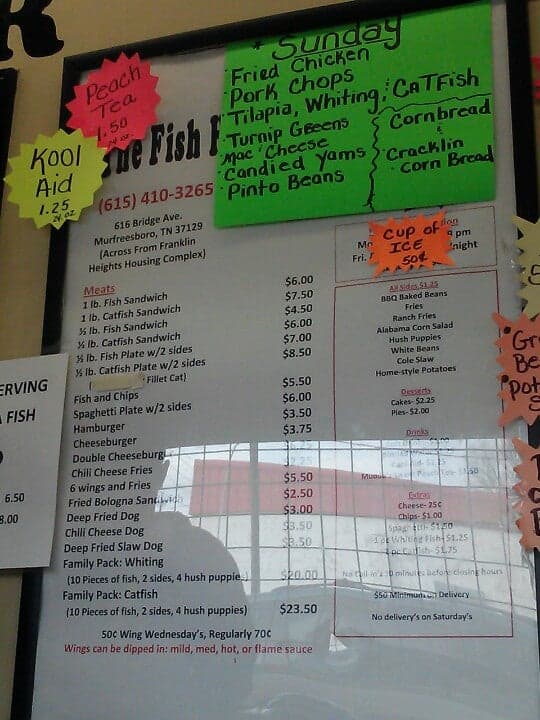 Peach
Tea
1.50
24 oz.
Kool
Aid
1.25
24 oz
Sunday
Fried Chicken
Pork Chops
Tilapia, Whiting, CATFish
Turnip Greens
Mac' Cheese
Candied Yams
Pinto Beans
Cornbread
&
Cracklin
Corn Bread
The Fish
(615) 410-3265
616 Bridge Ave.
Murfreesboro, TN 37129
(Across From Franklin
Heights Housing Complex)
CUP OF
ICE
50¢
pm
Fri.
Meats
1 lb. Fish Sandwich $6.00
1 lb. Catfish Sandwich $7.50
½ lb. Fish Sandwich $4.50
½ lb. Catfish Sandwich $6.00
½ lb. Fish Plate w/2 sides $7.00
½ lb. Catfish Plate w/2 sides $8.50
Fillet Cat)
Fish and Chips $5.50
Spaghetti Plate w/2 sides $6.00
Hamburger $3.50
Cheeseburger $3.75
Double Cheeseburger
Chili Cheese Fries
6 wings and Fries $5.50
Fried Bologna Sandwich $2.50
Deep Fried Dog $3.00
Chili Cheese Dog $3.50
Deep Fried Slaw Dog $3.50
Family Pack: Whiting
(10 Pieces of fish, 2 sides, 4 hush puppies) $20.00
Family Pack: Catfish
(10 Pieces of fish, 2 sides, 4 hush puppies) $23.50
50¢ Wing Wednesday's, Regularly 70¢
Wings can be dipped in: mild, med, hot, or flame sauce
All Sides $1.25
BBQ Baked Beans
Fries
Ranch Fries
Alabama Corn Salad
Hush Puppies
White Beans
Cole Slaw
Home-style Potatoes
Desserts
Cakes- $2.25
Pies- $2.00
Drinks
Extras
Cheese- 25¢
Chips- $1.00
Spaghetti- $1.50
1 pc Whiting Fish- $1.25
1 pc Catfish- $1.75
No Call in's 30 minutes before closing hours
$50 Minimum on Delivery
No delivery's on Saturday's
ERVING
A FISH
6.50
8.00